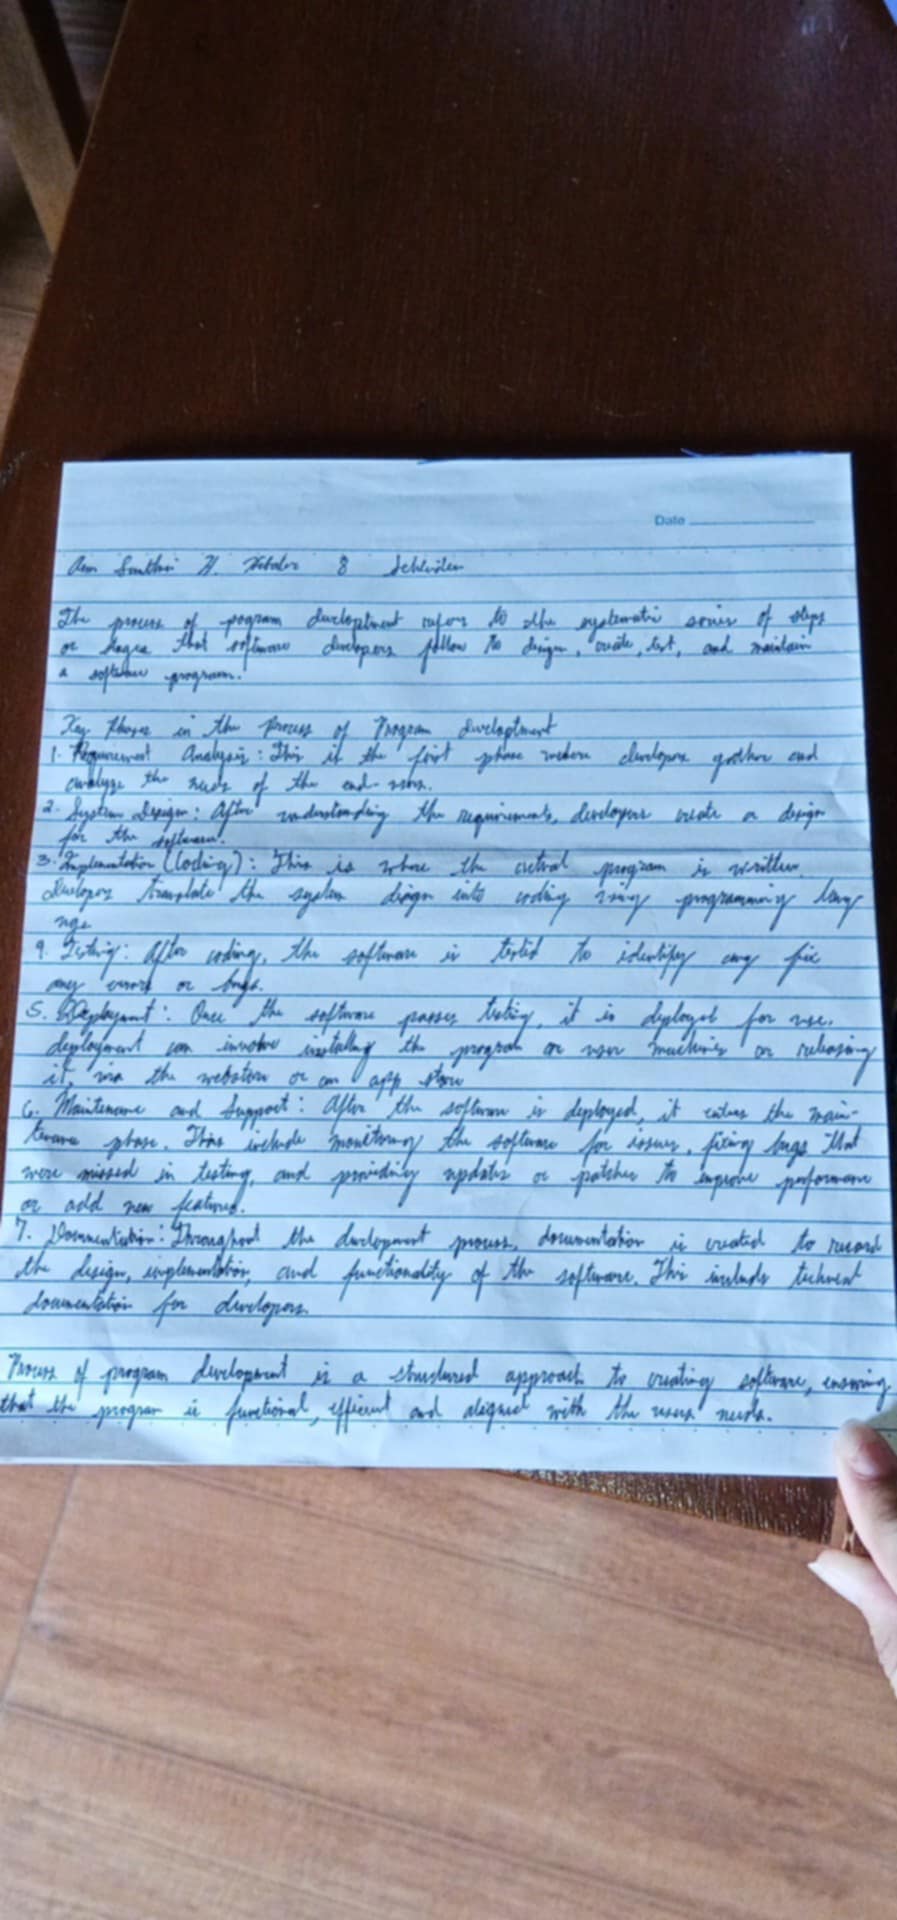 Date
H. 8
The process of pogram development refers to the systematic series of steps
or stages that software developers follow to design, create, test, and maintain
a software program.
Key Phases in the Process of Program development
1. Requirement Analysis: This is the first phase where developers gather and
analyze the needs of the end-users.
2. System Design: After understanding the requirements, developers create a design
for the software.
3. Implementation (Coding): This is where the actual program is written.
developers translate the system design into coding using programming lang
uage
4. Testing: After coding, the software is tested to identify any fix
any errors or bugs.
5. Deployment: Once the software passes testing, it is deployed for use.
deployment can involve installing the program on user machines or releasing
it, via the webstore or an app store
6. Maintenance and Support: After the software is deployed, it enters the main-
tenance phase. This include monitoring the software for issues, fixing bugs that
were missed in testing, and providing updates or patches to improve performance
or add new features.
7. Documentation: Throughout the development process, documentation is created to record
the design, implementation, and functionality of the software. This includes technical
documentation for developers.
Process of program development is a structured approach to creating software, ensuring
that the program is functional, efficient and aligned with the users needs.